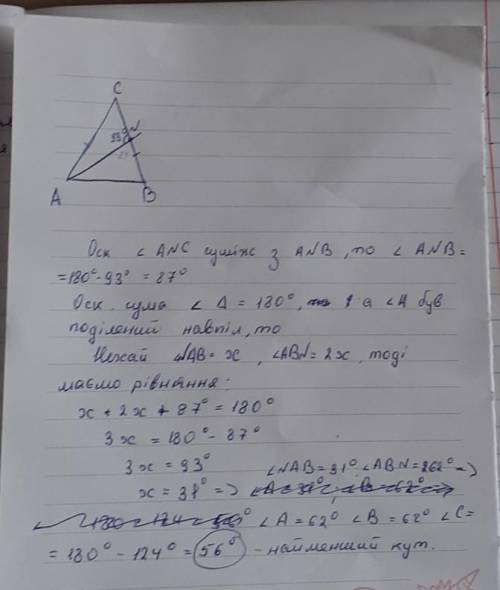 C
93°
N
A
B
Оск ∠ ANC суміж з ANB, то ∠ ANB=
=180°-93° = 87°
Оск. сума ∠ Δ = 180°, а ∠A був
поділений навпіл, то
Нехай ∠NAB= x, ∠ABN= 2x, тоді
маємо рівняння:
x + 2x + 87° = 180°
3x = 180° - 87°
3x = 93°
∠NAB=31° ∠ABN=262° =>
x = 31° =>
∠A=62° ∠B=62° ∠C=
= 180° - 124° = 56° - найменший кут.